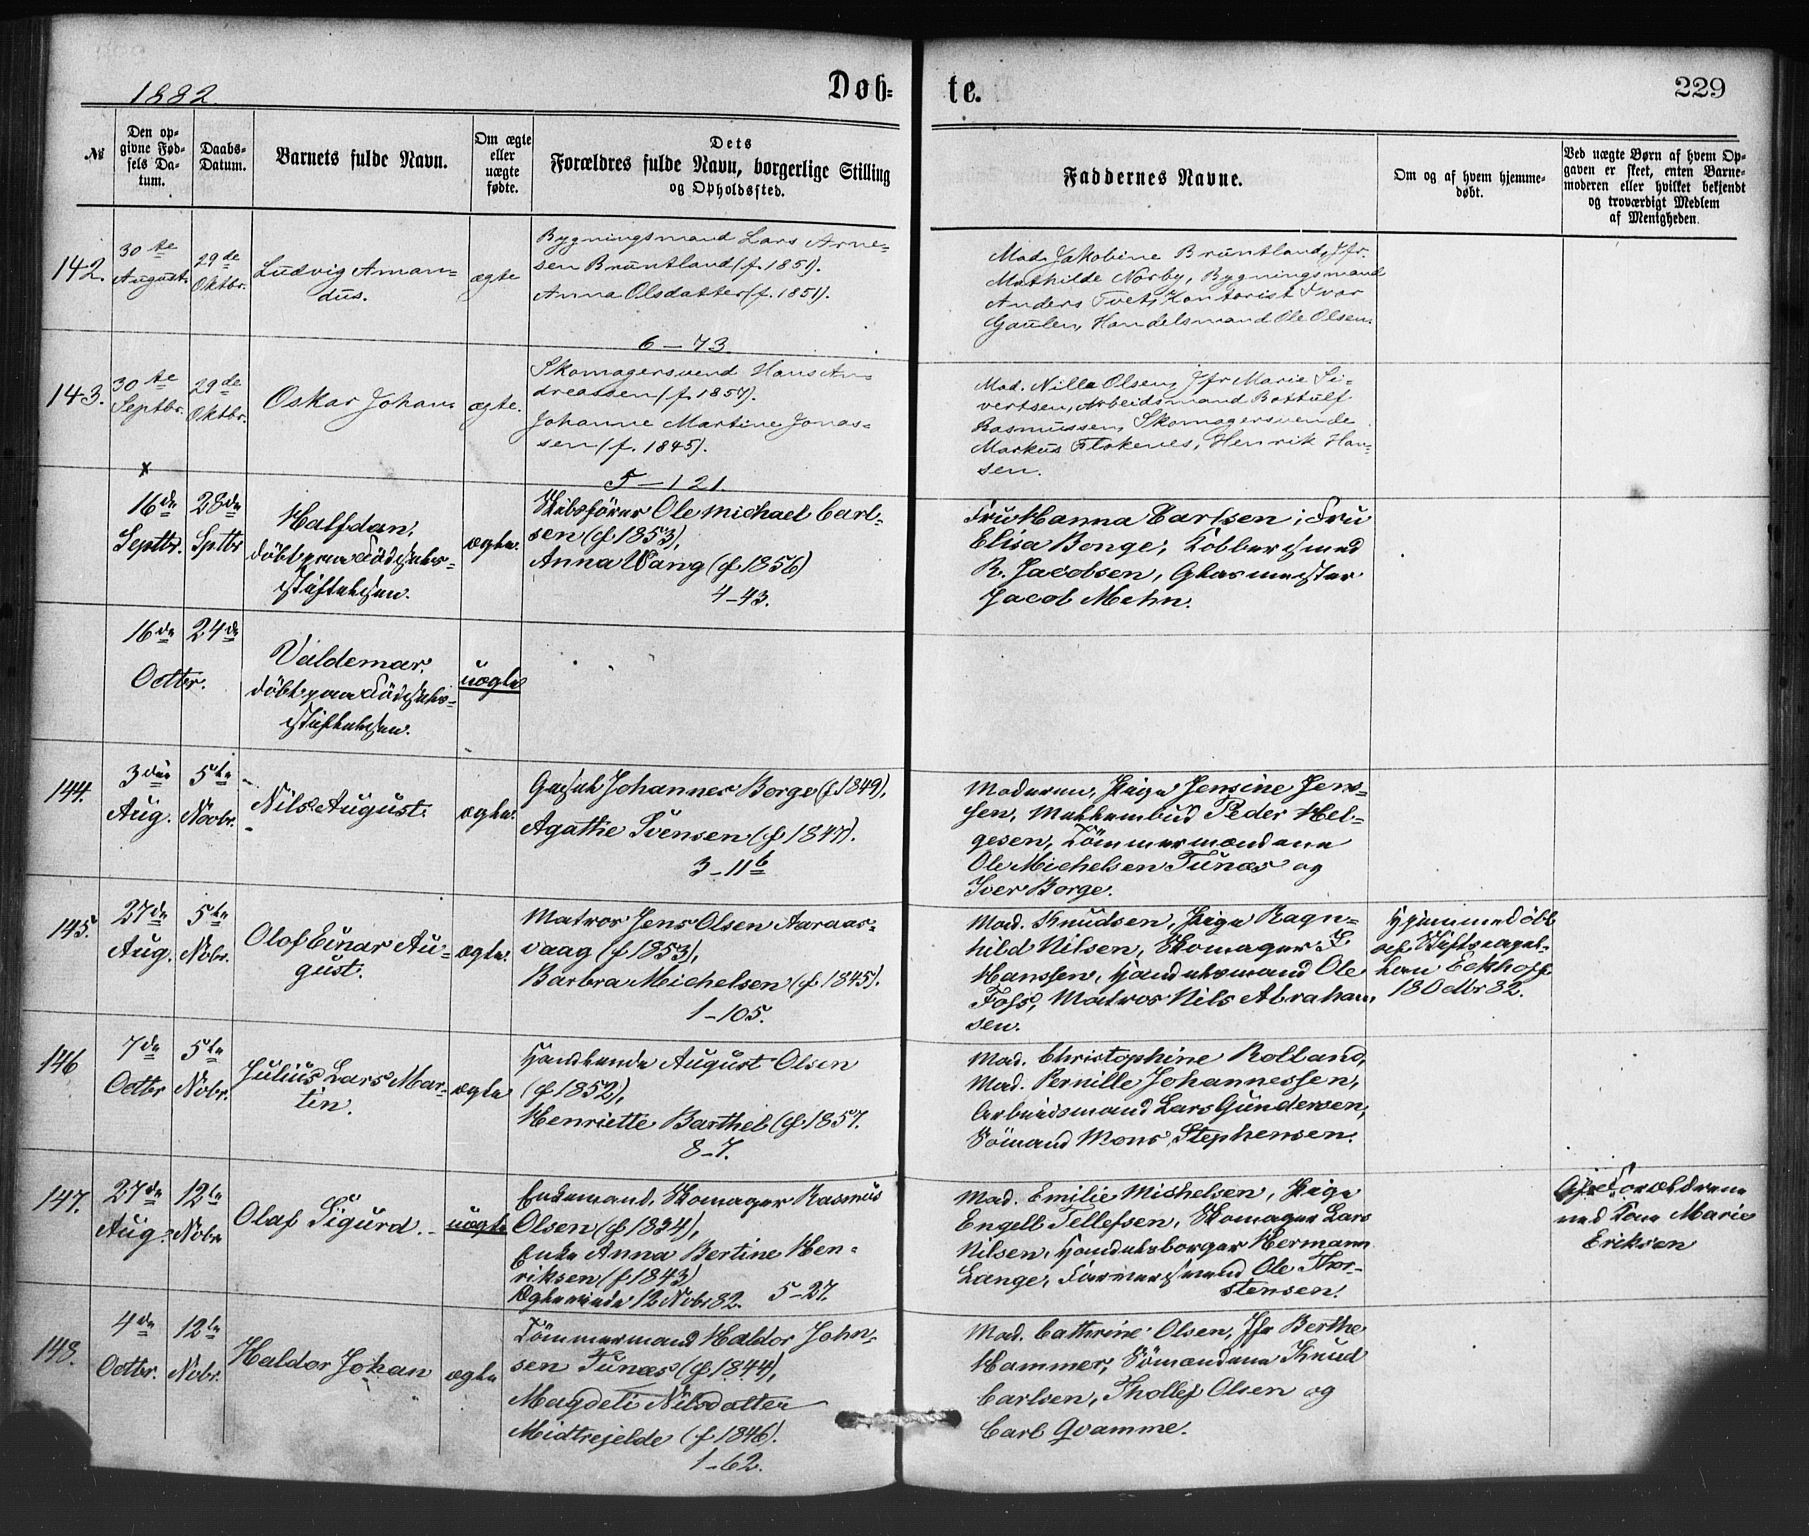 1882.
Døb-
te.
229
№
Den op-
givne Fød-
sels Da-
tum.
Daabs-
Datum.
Barnets fulde Navn.
Om ægte
eller
uægte
fødte.
Dets
Forældres fulde Navn, borgerlige Stilling
og Opholdssted.
Faddernes Navne.
Om og af hvem hjemme-
døbt.
Ved uægte Børn af hvem Op-
gaven er skeet, enten Barne-
moderen eller hvilket bekjendt
og troværdigt Medlem
af Menigheden.
142.
30te
August.
29de
Oktbr.
Ludvig Aman-
dus.
ægte
Bygningsmand Lars Arne-
sen Bruntland (f. 1851).
Anna Olsdatter (f. 1851).
6-73.
Mad. Jakobine Bruntland, Jfr.
Mathilde Norby, Bygningsmand
Anders Tvet, Kontorist Ivar
Gaulen, Handelsmand Ole Olsen.
143.
30te
Septbr.
29de
Oktbr.
Oskar Johan.
ægte.
Skomagersvend Hans An-
dreassen (f. 1857).
Johanne Martine Jonas-
sen (f. 1845).
5-121.
Mad. Nille Olsen, Jfr Marie Si-
vertsen, Arbeidsmand Bottulf
Rasmussen, Skomagersvende
Markus Flokenes, Henrik Han-
sen.
x
16de
Septbr.
28de
Sptbr
Halfdan,
døbt paa Fødsels-
stiftelsen.
ægte.
Skibsfører Ole Michael Carl-
sen (f 1853),
Anna Wang (f 1856)
4-43.
Fru Hanna Carlsen, Fru
Elisa Bonge, Kobbersmed
R. Jacobsen, Glasmester
Jacob Mehn.
16de
24de
Octbr.
Valdemar.
døbt paa Fødsels-
stiftelsen.
uægte
144.
3die
Aug.
5te
Novbr.
Nils August.
ægte.
Johannes Borge (f 1849),
Agathe Svensen (f 1847).
3-11b
Moderen, Pige Jensine Jens-
sen, Peder Hel-
gesen, Tømmermændene
Ole Michelsen Tunæs og
Iver Borge.
145.
27de
Aug.
5te
Nobr.
Olof Einar Au-
gust.
ægte.
Matros Jens Olsen Aaraas-
vaag (f 1853),
Barbra Michelsen (f. 1845).
1-105.
Mad. Knudsen, Pige Ragn-
hild Nilsen, Skomager L
Hanssen, Handelsmand Ole
Foss, Matros Nils Abraham-
sen.
Hjemmedøbt
af Stiftscapel-
lan Eckhoff
18 Octbr 82.
146
7de
Octbr
5te
Nobr.
Julius Lars Mar-
tin.
ægte
August Olsen
(f 1852),
Henriette Barthel (f. 1857.
8-7.
Mad. Christophine Rolland,
Mad. Pernille Johannessen,
Arbeidsmand Lars Gundersen,
Sømand Mons Stephensen.
147.
27de
Aug.
12te
Nobr
Olaf Sigurd.
uægte
Enkemand, Skomager Rasmus
Olsen (f 1834),
Enke Anna Bertine Hen-
riksen (f 1843)
Ægteviede 12 Nobr 82. 5-27.
Mad. Emilie Mishelsen, Pige
Engell Tellefsen, Skomager Lars
Nilsen, Handelsborger Hermann
Lange, Farversvend Ole Thor-
stensen.
Af Forældrene
ved Marie
Eriksen
148.
4de
Octbr.
12te
Nobr.
Haldor Johan
ægte
Tømmermand Haldor John-
sen Tunæs (f 1844),
Magdeli Nilsdatter
Midtrejelde (f 1846).
1-62.
Mad. Cathrine Olsen, Jfr Berthe
Hammer, Sømændene Knud
Carlsen, Thollef Olsen og
Carl Qvamme.